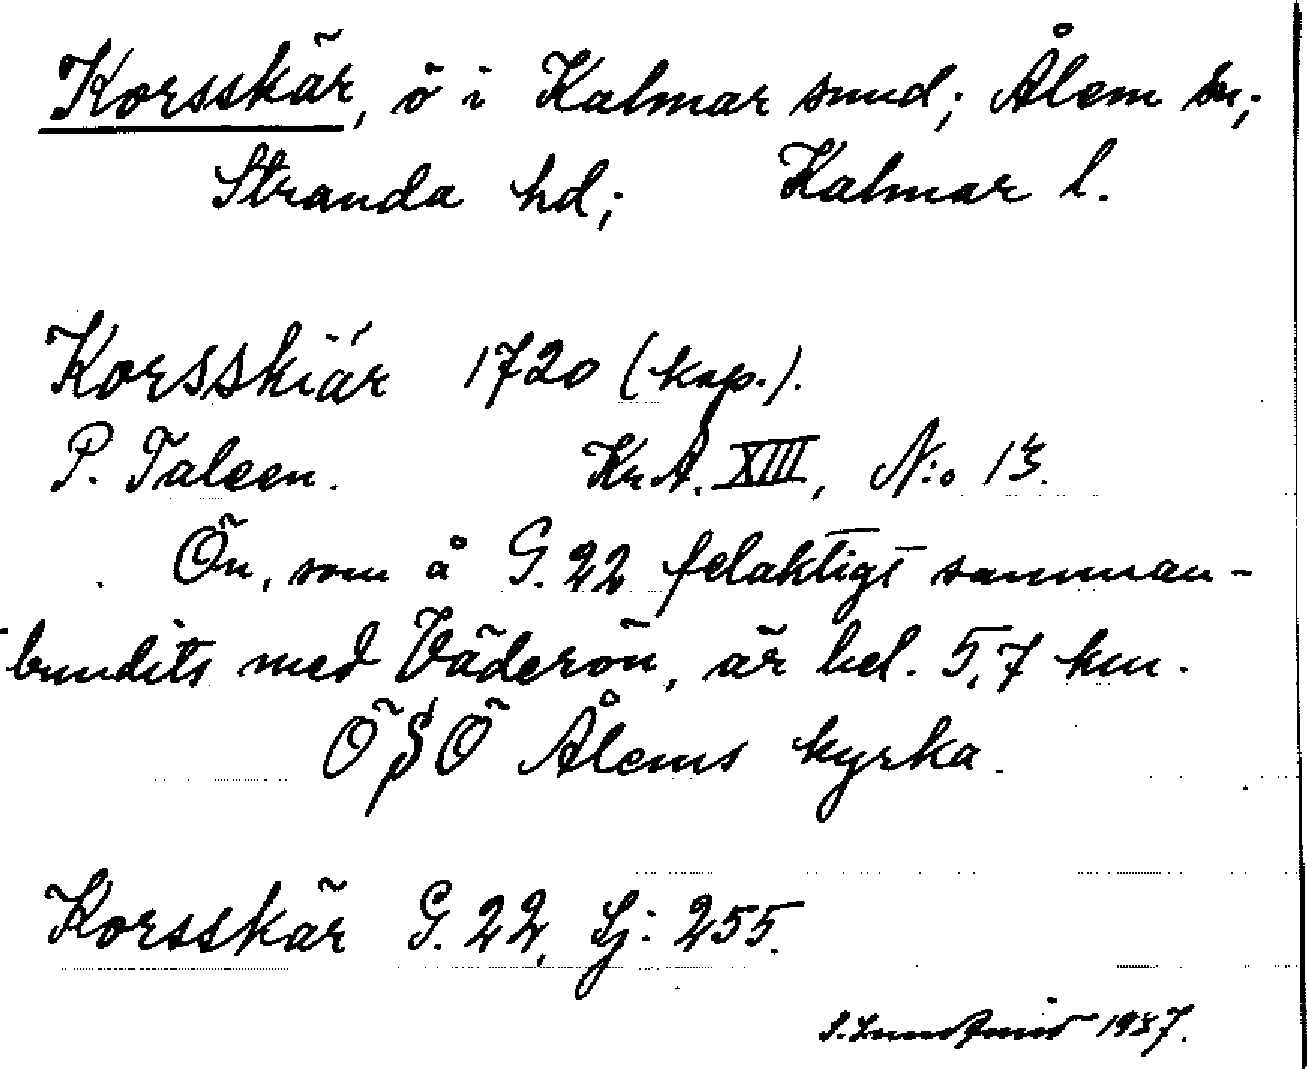 Korsskär, ö i Kalmar sund; Ålem sn;
Stranda hd; Kalmar l.
Korsskiär 1720 (kop.).
P. Taleen. Kr.A. XIII, N:o 13.
Ön, som å G. 22 felaktigt samman-
bundits med Väderön, är bel. 5,7 km.
ÖSÖ Ålems kyrka.
Korsskär G. 22, Lj: 255.
1937.